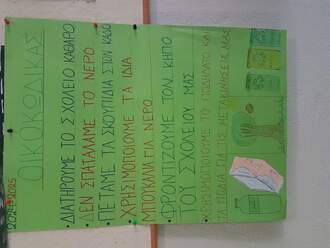 2024-2025
ΟΙΚΟΚΩΔΙΚΑΣ
• ΔΙΑΤΗΡΟΥΜΕ ΤΟ ΣΧΟΛΕΙΟ ΚΑΘΑΡΟ
• ΔΕΝ ΣΠΑΤΑΛΑΜΕ ΤΟ ΝΕΡΟ
• ΠΕΤΑΜΕ ΤΑ ΣΚΟΥΠΙΔΙΑ ΣΤΟΝ ΚΑΔΟ
• ΧΡΗΣΙΜΟΠΟΙΟΥΜΕ ΤΑ ΙΔΙΑ
ΜΠΟΥΚΑΛΙΑ ΓΙΑ ΝΕΡΟ
• ΦΡΟΝΤΙΖΟΥΜΕ ΤΟΝ ΚΗΠΟ
ΤΟΥ ΣΧΟΛΕΙΟΥ ΜΑΣ
• ΧΡΗΣΙΜΟΠΟΙΟΥΜΕ ΤΟ ΠΟΔΗΛΑΤΟ ΚΑΙ
ΤΑ ΠΟΔΙΑ ΓΙΑ ΤΙΣ ΜΕΤΑΚΙΝΗΣΕΙΣ ΜΑΣ